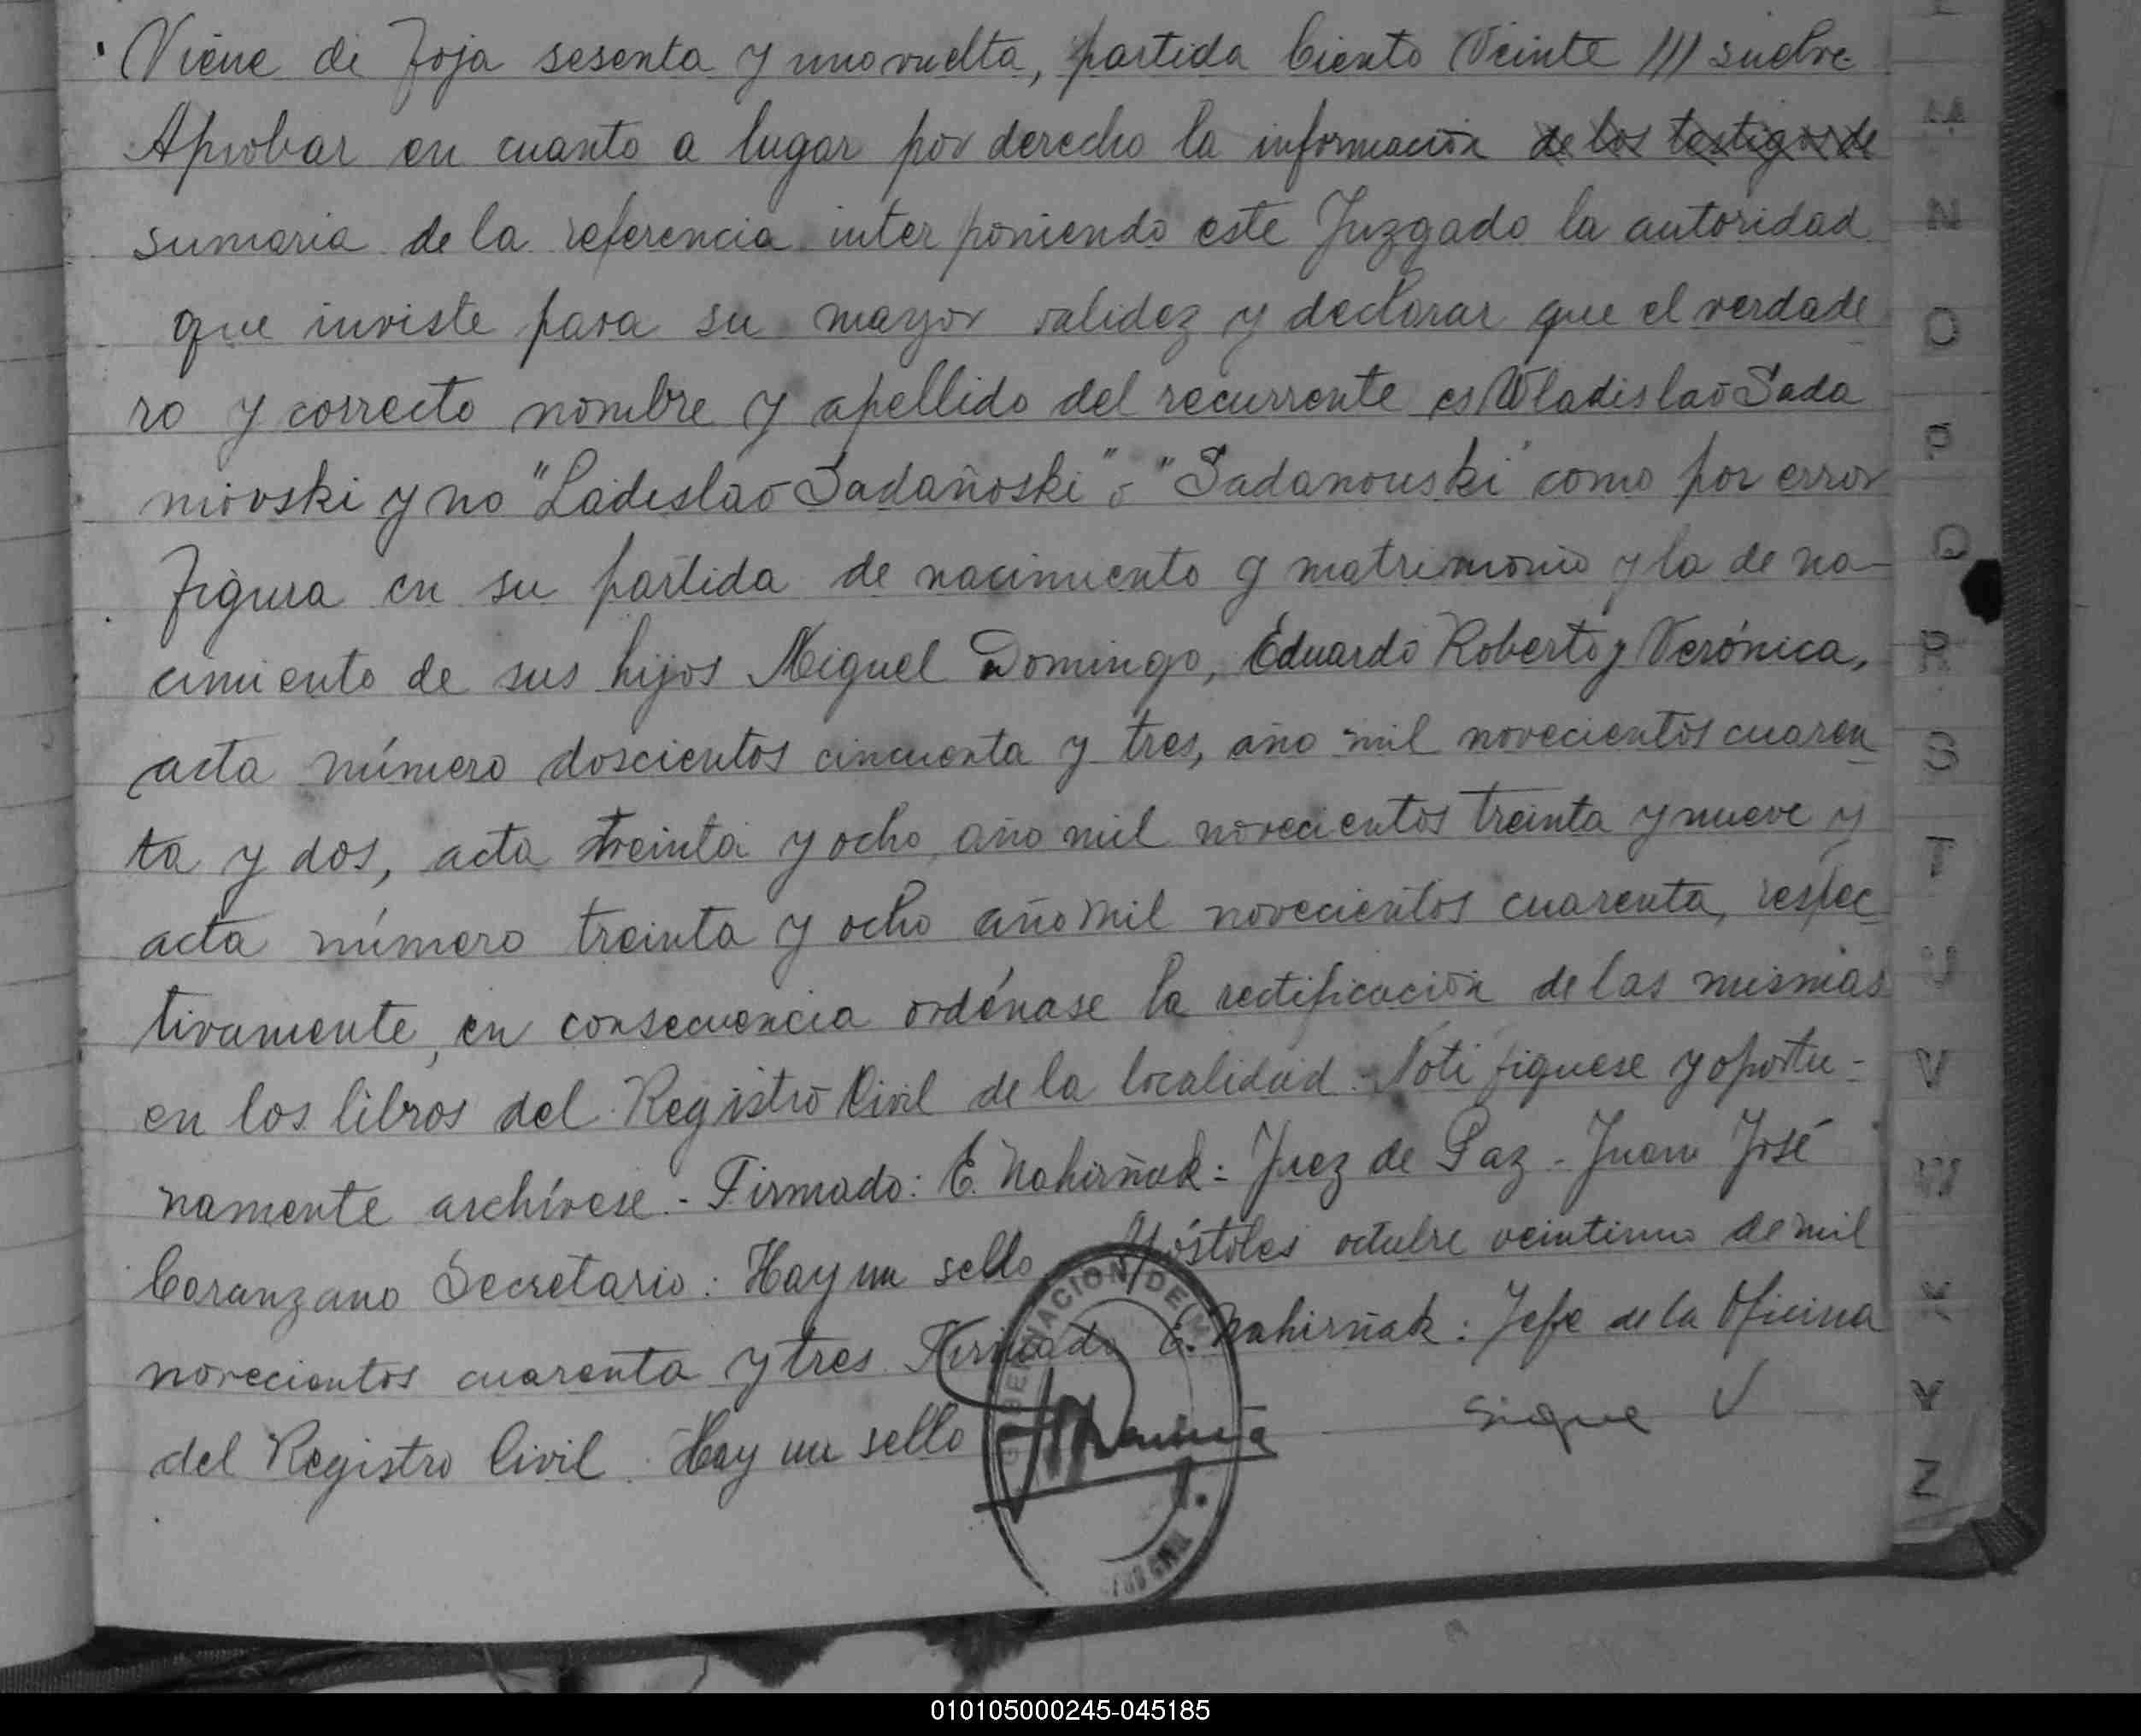 Viene de foja sesenta y uno vuelta, partida Ciento Veinte /// suelve.
Aprobar en cuanto a lugar por derecho la información de los testigos de
sumaria de la referencia inter poniendo este Juzgado la autoridad
que inviste para su mayor validez y declarar que el verdade
ro y correcto nombre y apellido del recurrente es Wladislao Sada
niovski y no "Ladislao Sadañoski" o "Sadanouski" como por error
figura en su partida de nacimiento y matrimonio y la de na-
cimiento de sus hijos Miguel Domingo, Eduardo Roberto y Verónica,
acta número doscientos cincuenta y tres, año mil novecientos cuaren
ta y dos, acta treinta y ocho, año mil novecientos treinta y nueve y
acta número treinta y ocho año mil novecientos cuarenta, respec
tivamente, en consecuencia ordénase la rectificación de las mismas
en los libros del Registro Civil de la localidad. Notifiquese y oportu-
namente archívese.- Firmado: E. Nahirñak: Juez de Paz - Juan José
Caranzano Secretario: Hay un sello Apóstoles octubre veintiuno de mil
novecientos cuarenta y tres Firmado E. Nahirñak: Jefe de la Oficina
del Registro Civil. Hay un sello
Sigue
GOBERNACION DE
M
N
O
P
Q
R
S
T
U
V
W
X
Y
Z
010105000245-045185